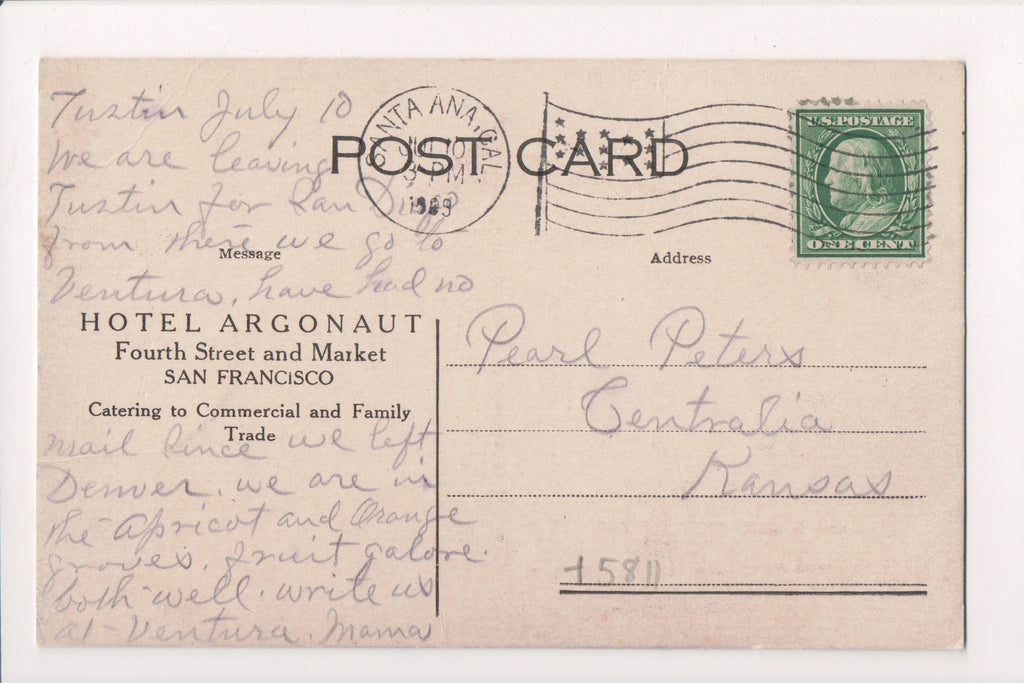 Tustin July 10
We are leaving
Tustin for San Diego
from there we go to
Ventura, have had no
mail since we left
Denver. we are in
the apricot and Orange
groves. fruit galore.
both well. write us
at Ventura. Mama
POST CARD
SANTA ANA, CAL.
JUL 10
3 PM
1909
U.S. POSTAGE
ONE CENT
Message
Address
HOTEL ARGONAUT
Fourth Street and Market
SAN FRANCISCO
Catering to Commercial and Family
Trade
Pearl Peters
Centralia
Kansas
+5811